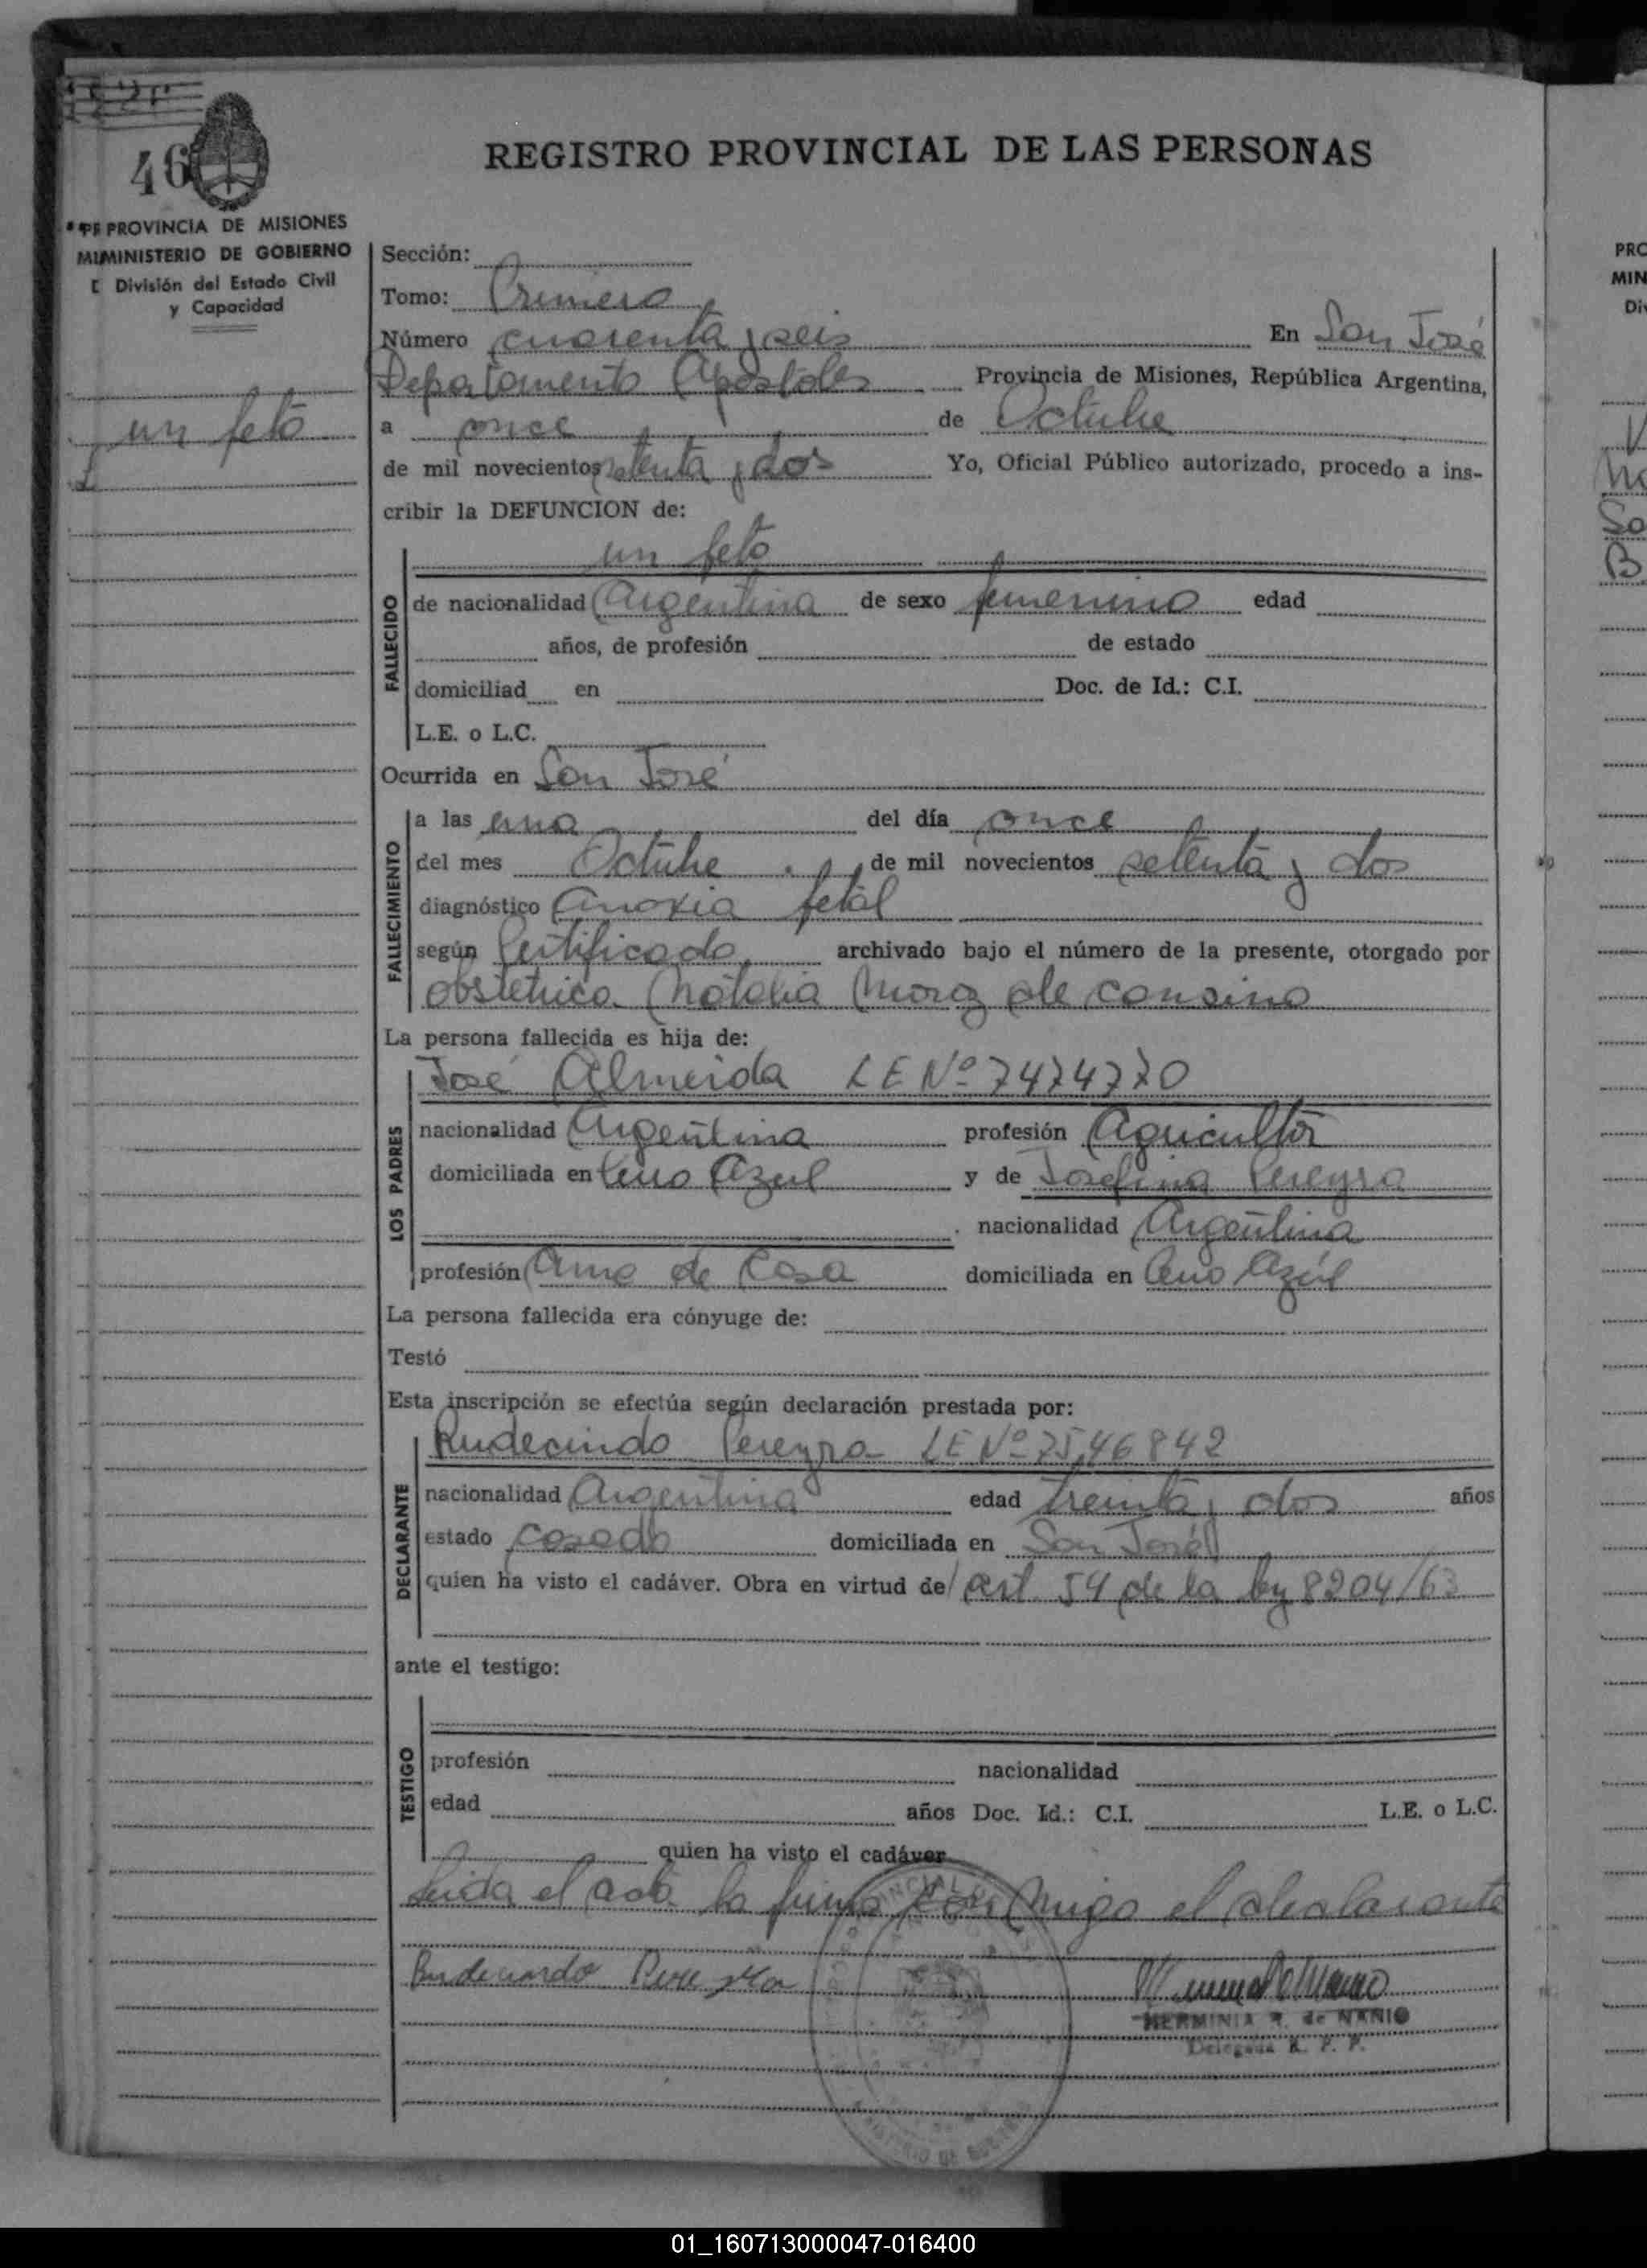 46
REGISTRO PROVINCIAL DE LAS PERSONAS
PROVINCIA DE MISIONES
MINISTERIO DE GOBIERNO
División del Estado Civil
y Capacidad
un feto
Sección:
Tomo: Primero
Número cuarenta y seis En San José
Departamento Apóstoles Provincia de Misiones, República Argentina,
a once de Octubre
de mil novecientos setenta y dos Yo, Oficial Público autorizado, procedo a ins-
cribir la DEFUNCION de:
un feto
FALLECIDO
de nacionalidad Argentina de sexo femenino edad
años, de profesión de estado
domiciliad en Doc. de Id.: C.I.
L.E. o L.C.
Ocurrida en San José
FALLECIMIENTO
a las una del día once
del mes Octubre de mil novecientos setenta y dos
diagnóstico Anoxia fetal
según Certificado archivado bajo el número de la presente, otorgado por
obstetrica Natalia de
La persona fallecida es hija de:
LOS PADRES
José Almeida LE Nº 7474770
nacionalidad Argentina profesión Agricultor
domiciliada en Cerro Azul y de Josefina Pereyra
nacionalidad Argentina
profesión Ama de Casa domiciliada en Cerro Azúl
La persona fallecida era cónyuge de:
Testó
Esta inscripción se efectúa según declaración prestada por:
DECLARANTE
Rudecindo Pereyra LE Nº 7546842
nacionalidad Argentina edad treinta y dos años
estado casado domiciliada en San José
quien ha visto el cadáver. Obra en virtud de art. 54 de la ley 8204/63
ante el testigo:
TESTIGO
profesión nacionalidad
edad años Doc. Id.: C.I. L.E. o L.C.
quien ha visto el cadáver
Leida el acta la firma con migo el declarante
Rudecindo Pereyra
HERMINIA R. de NANIO
Delegada R. P. P.
01_160713000047-016400